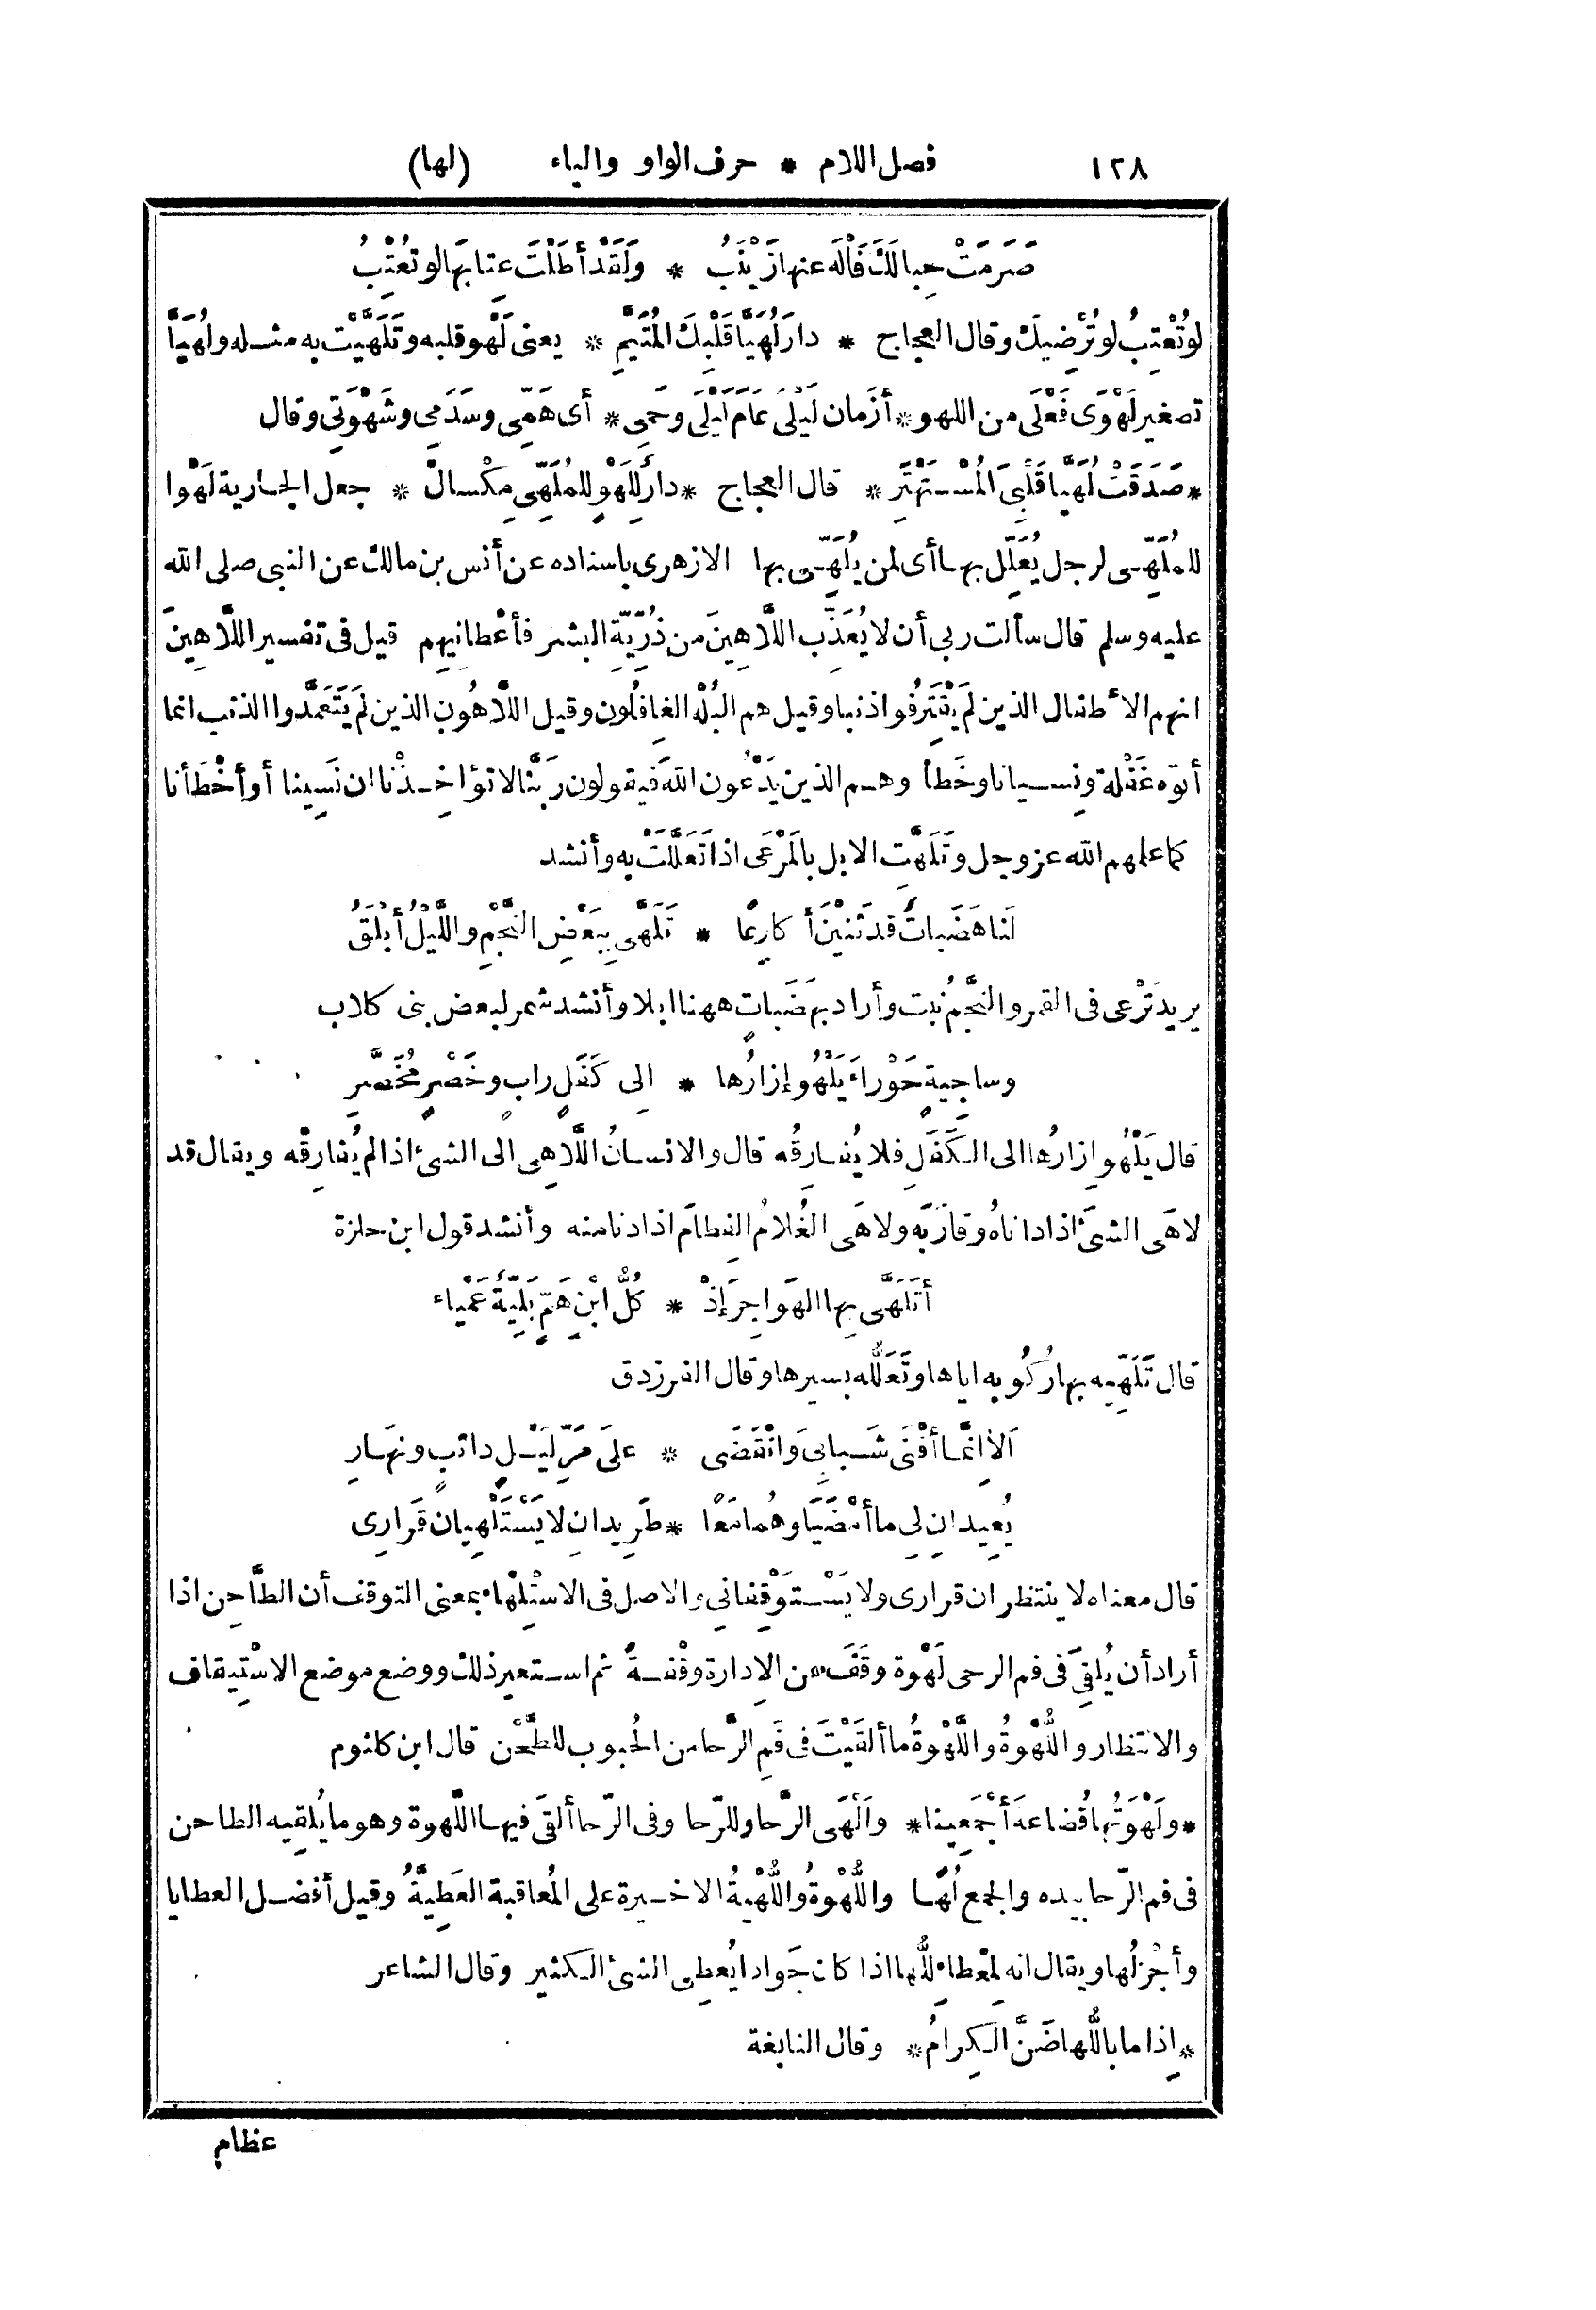 ١٢٨ فصل اللام * حرف الواو والياء (لها)
صَرَمَتْ حِبالَكَ فَالْهَ عنها زَيْنَبُ * ولَقَدْ أَطَلْتَ عِتابَها لو تُعْتِبُ
لو تُعْتِبُ لو تُرْضِيكَ وقال العجاج * دارَ لُهَيَّا قَلْبِكَ المُتَيَّمِ * يعنى لَهْو قلبه وتَلَهَّيْت به مثله ولُهَيَّا
تصغير لَهْوَى فَعْلَى من اللهو * أَزَمان لَيْلَى عَامَ لَيْلَى وحَمِى * أى هَمِّى وسَدَمِى وشَهْوَتِى وقال
* صَدَقَتْ لُهَيَّا قَلْبِىَ المُسْتَهْتَرِ * قال العجاج * دارٌ لِلَهْوٍ للمُلَهِّى مِكْسالْ * جعل الجارية لَهْوا
للمُلَهِّى لرجل يُعَلِّل بها أى لمن يُلَهِّى بها الازهرى باسناده عن أنس بن مالك عن النبى صلى الله
عليه وسلم قال سألت ربى أن لا يُعَذِّب اللَّاهِينَ من ذُرِّيَّة البشر فأعْطانِيهم قيل فى تفسير اللَّاهِينَ
انهم الأطفال الذين لم يَقْتَرِفُوا ذنبا وقيل هم البُلْه الغافِلُون وقيل اللَّاهُون الذين لم يَتَعَمَّدوا الذنب انما
أتوه غَفْلة ونِسيانا وخَطأ وهم الذين يَدْعُون اللهَ فيقولون رَبَّنا لا تؤاخِذْنا ان نَسِينا أو أخْطَأنا
كما علمهم الله عز وجل وتَلَهَّتِ الابل بالمَرْعَى اذا تَعَلَّلَتْ به وأنشد
لَنا هَضَباتٌ قد ثَنَيْنَ أَكارِعًا * تَلَهَّى بِبَعْضِ النَّجْمِ واللَّيْلُ أَبْلَقُ
يريد تَرْعى فى القمر والنَّجْمُ نَبت وأراد بهَضَباتٍ ههنا ابلا وأنشد شمر لبعض بنى كلاب
وساجِيةٍ حَوْراءَ يَلْهُو إِزارُها * الِى كَفَلٍ رابٍ وخَصْرٍ مُخَصَّرِ
قال يَلْهُو ازارُها الى الكَفَلِ فلا يُفارِقُه قال والانسانُ اللَّاهِى الى الشىء اذا لم يُفارِقْه ويقال قد
لاهَى الشىَّ اذا داناهُ وقارَبَه ولاهَى الغُلامُ الفِطامَ اذا دنا منه وأنشد قول ابن حلزة
أَتَلَهَّى بِها الهَواجِرَ إِذْ * كُلُّ ابْنِ هَمٍّ بَلِيَّةٌ عَمْياء
قال تَلَهِّيه بها رُكُوبه اياها وتَعَلُّله بسيرها وقال الفرزدق
أَلا إِنَّما أَفْنَى شَبابِىَ وَانْقَضَى * علىَ مَرِّ لَيْلٍ دائبٍ ونَهَارِ
يُعِيدانِ لِى ما أَمْضَيَا وهُما مَعًا * طَرِيدانِ لا يَسْتَلْهِيان قَرارِى
قال معناه لا ينتظران قرارى ولا يَسْتَوْقِفانى والاصل فى الاسْتِلْهاء بمعنى التوقف أن الطَّاحِن اذا
أراد أن يُلْقِىَ فى فم الرحى لَهْوة وقَفَ من الِادارة وقْفةً ثم استعير ذلك ووضع موضع الاسْتِيقاف
والانتظار واللُّهْوةُ واللَّهْوةُ ما ألقَيْتَ فى فَمِ الرَّحا من الحُبوب للطَّحْن قال ابن كلثوم
* ولَهْوَتُها قُضاعةَ أَجْمَعِينا * وأَلْهَى الرَّحا وللرّحا وفى الرّحا ألقَى فيها اللَّهوة وهو ما يُلقِيه الطاحن
فى فم الرّحا بيده والجمع لُهًا واللُّهْوةُ واللُّهْيةُ الاخيرة على المُعاقبة العَطِيَّةُ وقيل أفضل العطايا
وأجْزلُها ويقال انه لمِعْطاءٌ للُّها اذا كان جَوادا يُعطِى الشىءَ الكثير وقال الشاعر
* إِذا ما باللُّها ضَنَّ الكِرامُ * وقال النابغة
عظام